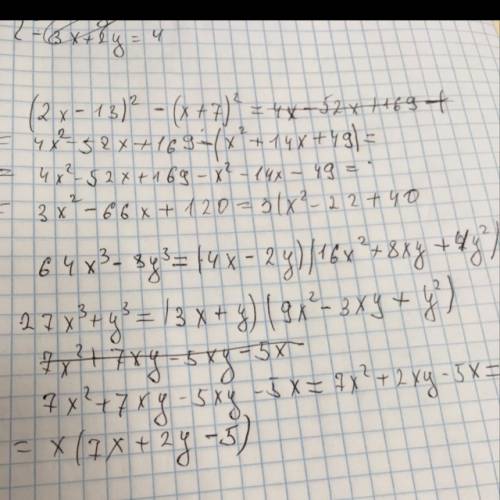 -(3x+2y=4
(2x-13)²-(x+7)²=4x-52x+169-(
=4x²-52x+169-(x²+14x+49)=
=4x²-52x+169-x²-14x-49=
=3x²-66x+120=3(x²-22+40
64x³-8y³=(4x-2y)(16x²+8xy+4y²)
27x³+y³=(3x+y)(9x²-3xy+y²)
7x²+7xy-5xy-5x
7x²+7xy-5xy-5x=7x²+2xy-5x=
=x(7x+2y-5)